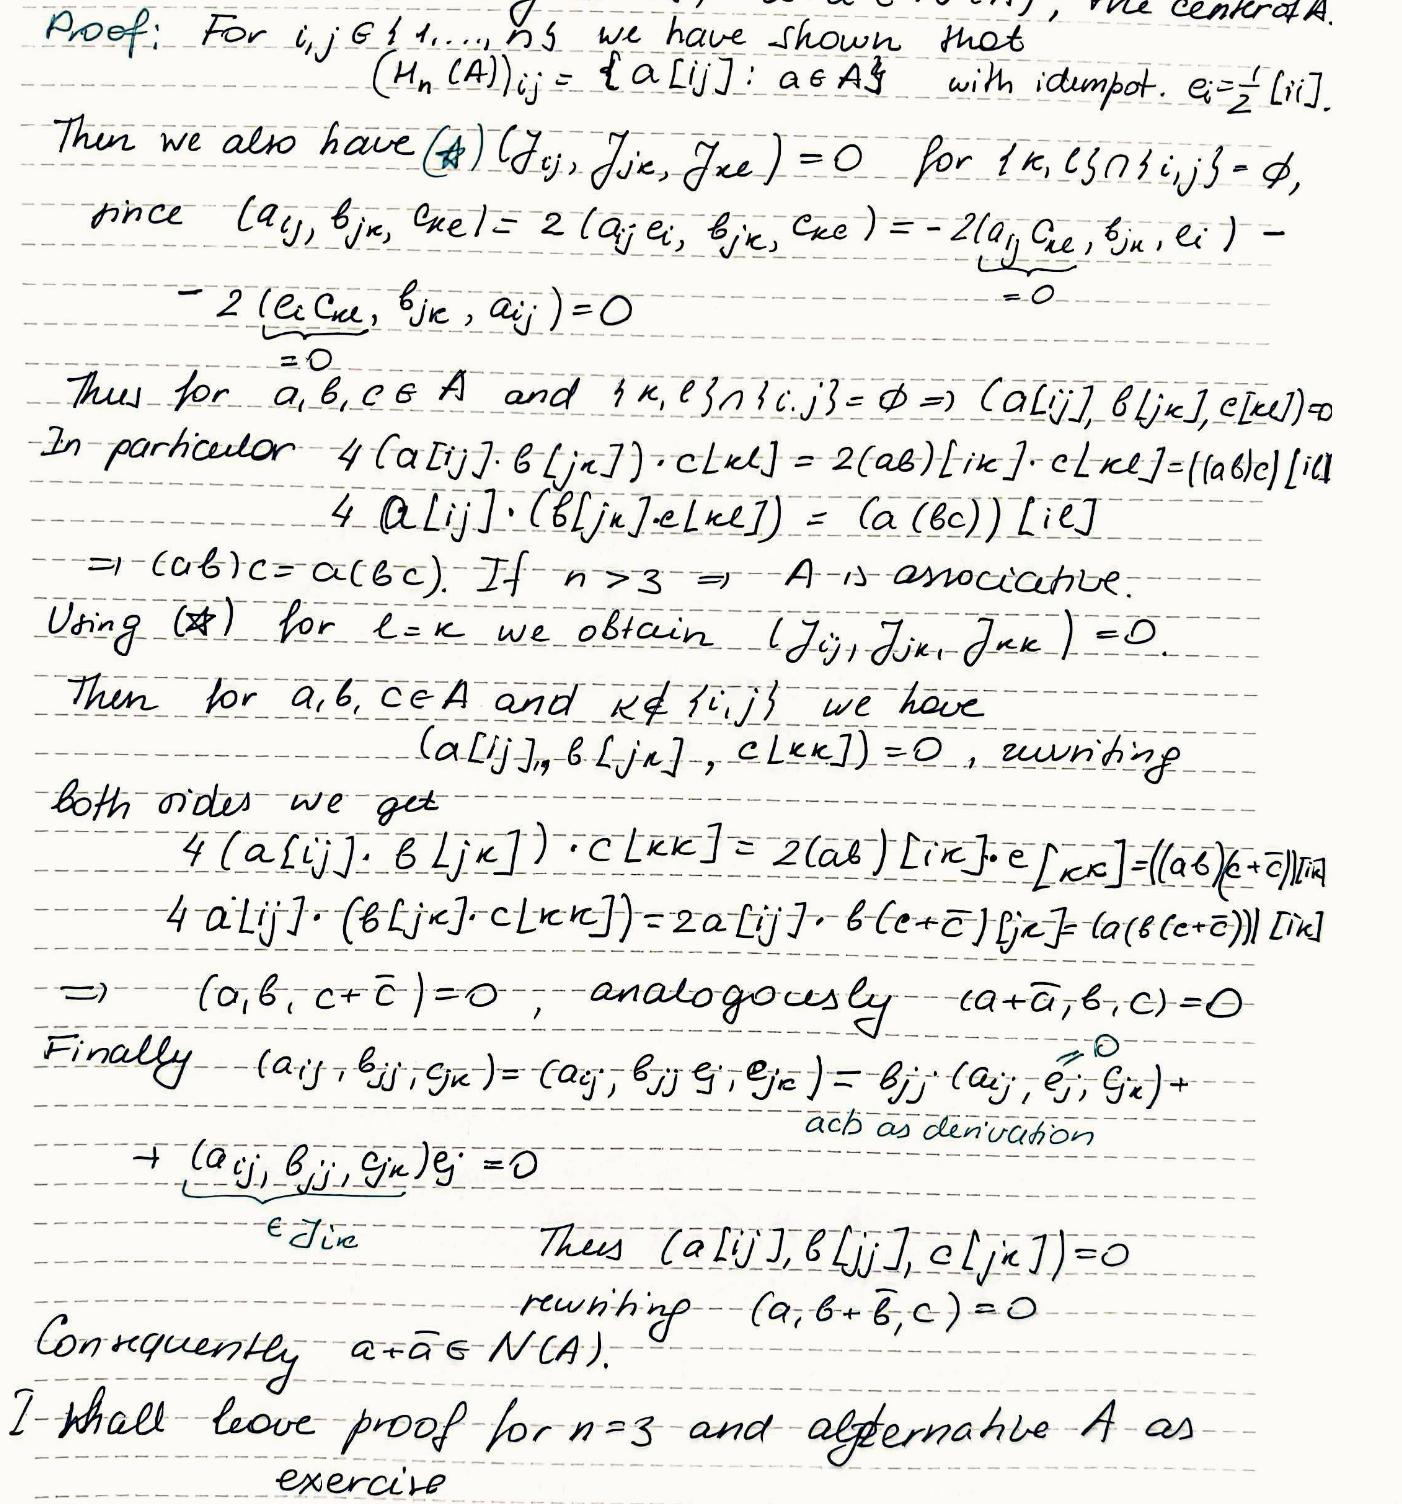 , the center of A.
Proof: For i,j ∈ {1,...,n} we have shown that
(Hn(A))ij = {a[ij] : a ∈ A} with idempot. ei = 1/2 [ii].
Then we also have (☆) (Jij, Jjk, Jkl) = 0 for {k,l}∩{i,j} = ∅,
since (aij, bjk, ckl) = 2(aij ei, bjk, ckl) = -2(aij ckl, bjk, ei) -
= 0
- 2(ei ckl, bjk, aij) = 0
= 0
Thus for a,b,c ∈ A and {k,l}∩{i.j} = ∅ => (a[ij], b[jk], c[kl]) = 0
In particular 4(a[ij]·b[jk])·c[kl] = 2(ab)[ik]·c[kl] = ((ab)c)[il]
4 a[ij]·(b[jk]·c[kl]) = (a(bc))[il]
=> (ab)c = a(bc). If n > 3 => A is associative.
Using (☆) for l = k we obtain (Jij, Jjk, Jkk) = 0.
Then for a,b,c ∈ A and k ∉ {i,j} we have
(a[ij], b[jk], c[kk]) = 0, rewriting
both sides we get
4(a[ij]·b[jk])·c[kk] = 2(ab)[ik]·c[kk] = ((ab)(c+c̄))[ik]
4 a[ij]·(b[jk]·c[kk]) = 2a[ij]·b(c+c̄)[jk] = (a(b(c+c̄)))[ik]
=> (a,b,c+c̄) = 0, analogously (a+ā,b,c) = 0
= 0
Finally (aij, bjj, cjk) = (aij, bjj ej, cjk) = bjj·(aij, ej, cjk) +
acts as derivation
+ (aij, bjj, cjk)ej = 0
∈ Jik
Thus (a[ij], b[jj], c[jk]) = 0
rewriting (a, b+b̄, c) = 0
Consequently a+ā ∈ N(A).
I shall leave proof for n=3 and alternative A as
exercise